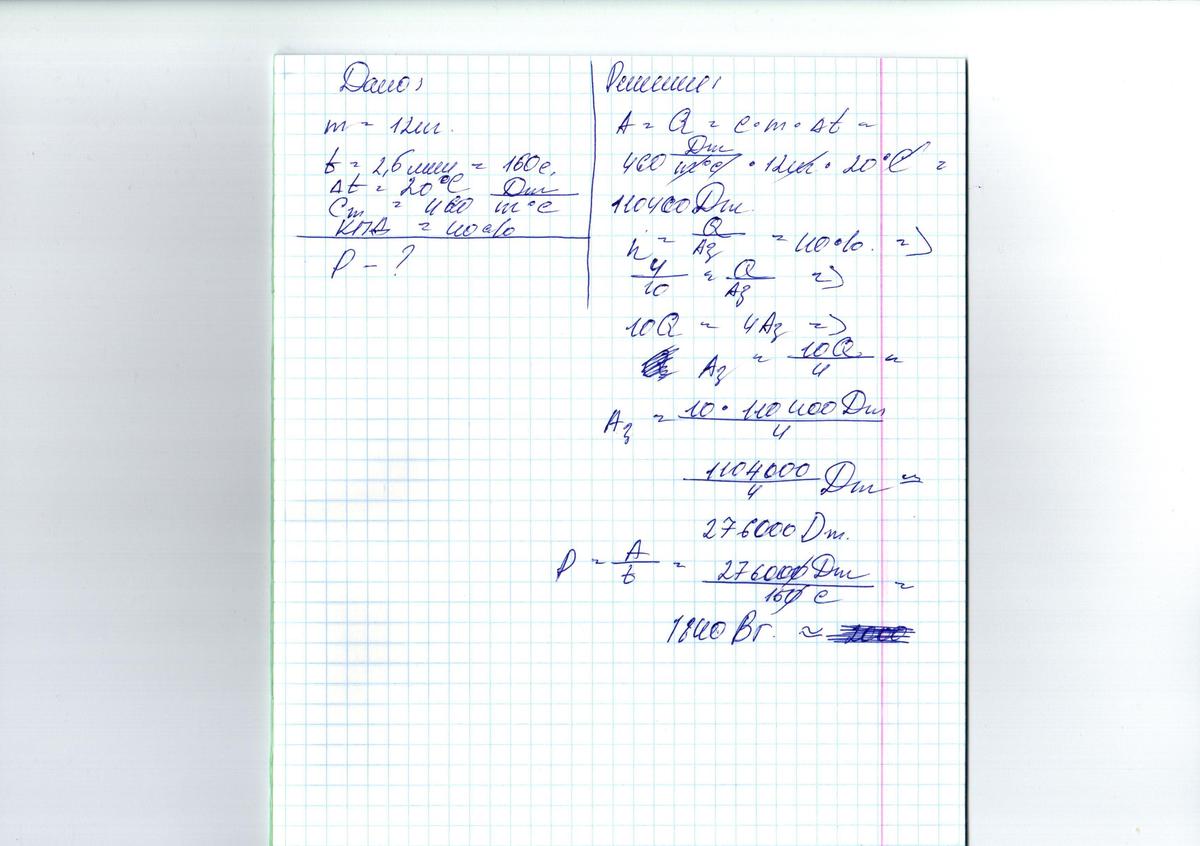 Дано:
m = 12кг.
t = 2,5 мин = 150с.
Δt = 20°C
Cт = 460 Дж/кг°C
КПД = 40%
P - ?
Решение:
A = Q = c·m·Δt =
460 Дж/кг°C · 12кг · 20°C =
110400 Дж.
η = Q/Aз = 40%. =>
4/10 = Q/Aз =>
10Q = 4Aз =>
Aз = 10Q/4 =
Aз = 10·110400 Дж/4
1104000/4 Дж =
276000 Дж.
P = A/t = 276000 Дж/150 с =
1840 Вт. ≈